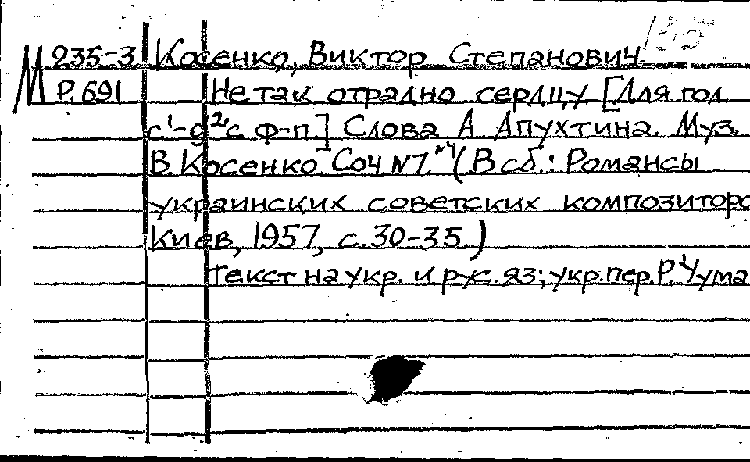 М 235-3 Косенко, Виктор Степанович.
Р. 691 Не так отрадно сердцу [Для гол
с¹-g² с ф-п] Слова А Апухтина. Муз.
В. Косенко. Соч №7, №4 (В сб.: Романсы
украинских советских композиторо
Киев, 1957, с. 30-35.)
Текст на укр. и рус. яз; укр. пер. Р. Чума